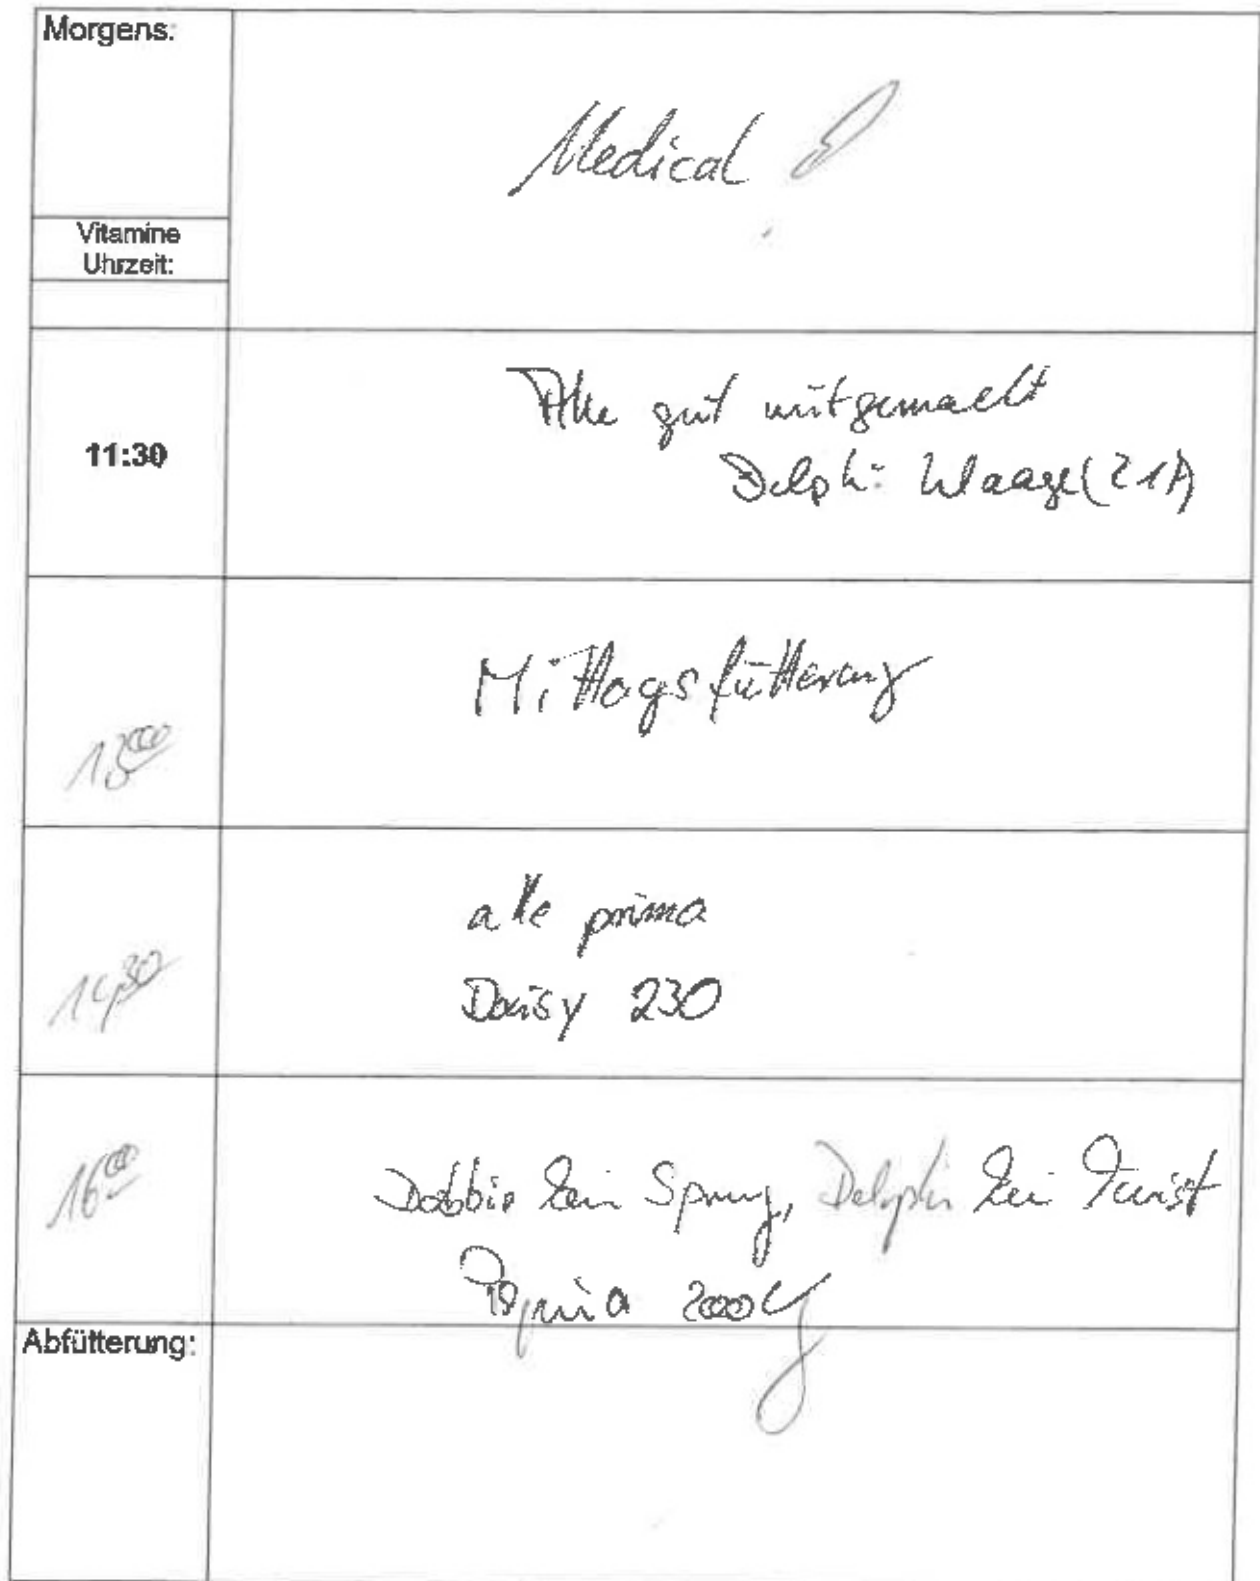 Morgens:
Medical
Vitamine
Uhrzeit:
11:30
Alle gut mitgemacht
Delphi: Waage (21A)
Mittagsfütterung
1300
14,30
alle prima
Daisy 230
1600
Dobbie kein Sprung, Delphi kein Twist
2000
Abfütterung: